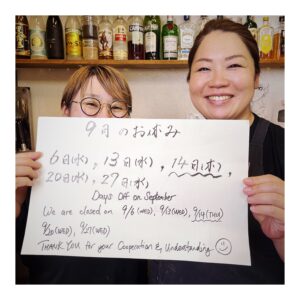 9月のお休み
6日(水), 13日(水), 14日(木),
20日(水), 27日(水)
Days Off on September
We are closed on 9/6 (WED), 9/13(WED), 9/14 (THU)
9/20(WED), 9/27(WED)
THANK YOU for your Cooperation & Understanding